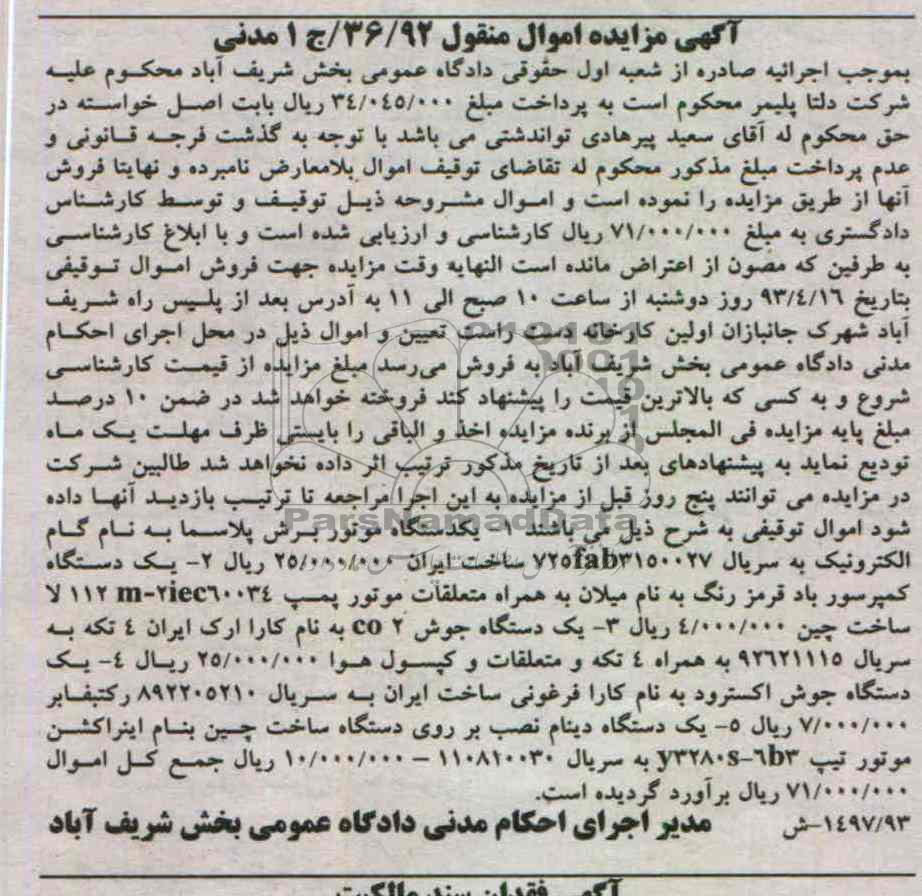 آگهی مزایده اموال منقول ۳۶/۹۲/ج ۱ مدنی
بموجب اجرائیه صادره از شعبه اول حقوقی دادگاه عمومی بخش شریف آباد محکوم علیه
شرکت دلتا پلیمر محکوم است به پرداخت مبلغ ۳٤/۰٤٥/۰۰۰ ریال بابت اصل خواسته در
حق محکوم له آقای سعید پیرهادی تواندشتی می باشد با توجه به گذشت فرجه قانونی و
عدم پرداخت مبلغ مذکور محکوم له تقاضای توقیف اموال بلامعارض نامبرده و نهایتا فروش
آنها از طریق مزایده را نموده است و اموال مشروحه ذیل توقیف و توسط کارشناس
دادگستری به مبلغ ۷۱/۰۰۰/۰۰۰ ریال کارشناسی و ارزیابی شده است و با ابلاغ کارشناسی
به طرفین که مصون از اعتراض مانده است النهایه وقت مزایده جهت فروش اموال توقیفی
بتاریخ ۹۳/٤/۱٦ روز دوشنبه از ساعت ۱۰ صبح الی ۱۱ به آدرس بعد از پلیس راه شریف
آباد شهرک جانبازان اولین کارخانه دست راست تعیین و اموال ذیل در محل اجرای احکام
مدنی دادگاه عمومی بخش شریف آباد به فروش می‌رسد مبلغ مزایده از قیمت کارشناسی
شروع و به کسی که بالاترین قیمت را پیشنهاد کند فروخته خواهد شد در ضمن ۱۰ درصد
مبلغ پایه مزایده فی المجلس از برنده مزایده اخذ و الباقی را بایستی ظرف مهلت یک ماه
تودیع نماید به پیشنهادهای بعد از تاریخ مذکور ترتیب اثر داده نخواهد شد طالبین شرکت
در مزایده می توانند پنج روز قبل از مزایده به این اجرا مراجعه تا ترتیب بازدید آنها داده
شود اموال توقیفی به شرح ذیل می باشند ۱- یکدستگاه موتور برش پلاسما به نام گام
ParsNamadData
الکترونیک به سریال ۷۲٥fab۳۱٥۰۰۲۷ ساخت ایران ۲٥/۰۰۰/۰۰۰ ریال ۲- یک دستگاه
کمپرسور باد قرمز رنگ به نام میلان به همراه متعلقات موتور پمپ m-۲iec٦۰۰۳٤ ۱۱۲ لا
ساخت چین ٤/۰۰۰/۰۰۰ ریال ۳- یک دستگاه جوش co ۲ به نام کارا ارک ایران ٤ تکه به
سریال ۹۲٦۲۱۱۱٥ به همراه ٤ تکه و متعلقات و کپسول هوا ۲٥/۰۰۰/۰۰۰ ریال ٤- یک
دستگاه جوش اکسترود به نام کارا فرغونی ساخت ایران به سریال ۸۹۲۲۰٥۲۱۰ رکتیفایر
۷/۰۰۰/۰۰۰ ریال ٥- یک دستگاه دینام نصب بر روی دستگاه ساخت چین بنام اینراکشن
موتور تیپ y۳۲۸۰s-٦b۳ به سریال ۱۱۰۸۱۰۰۳۰ – ۱۰/۰۰۰/۰۰۰ ریال جمع کل اموال
۷۱/۰۰۰/۰۰۰ ریال برآورد گردیده است.
۱٤۹۷/۹۳-ش مدیر اجرای احکام مدنی دادگاه عمومی بخش شریف آباد
آگهی فقدان سند مالکیت